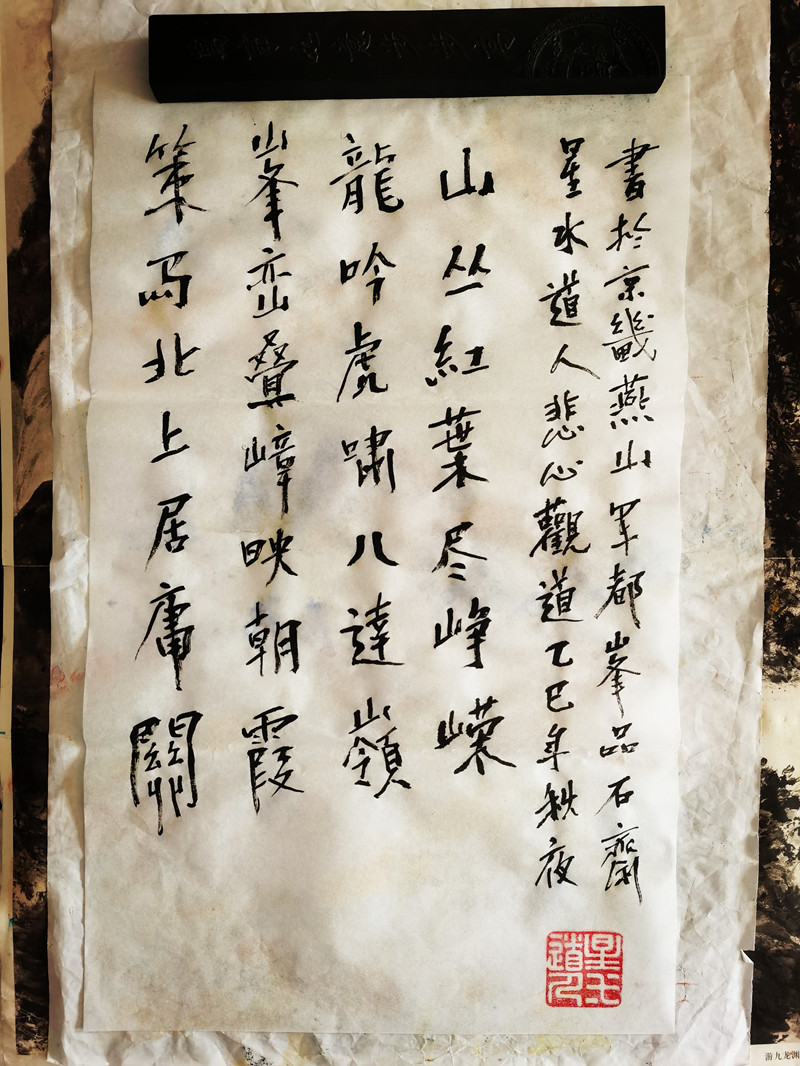 策馬北上居庸關
峯峦叠嶂映朝霞
龍吟虎嘯八達嶺
山丛紅葉尽峥嵘
星水道人悲心觀道乙巳年秋夜
書於京畿燕山军都峯品石齋
星水道人
游九龙渊